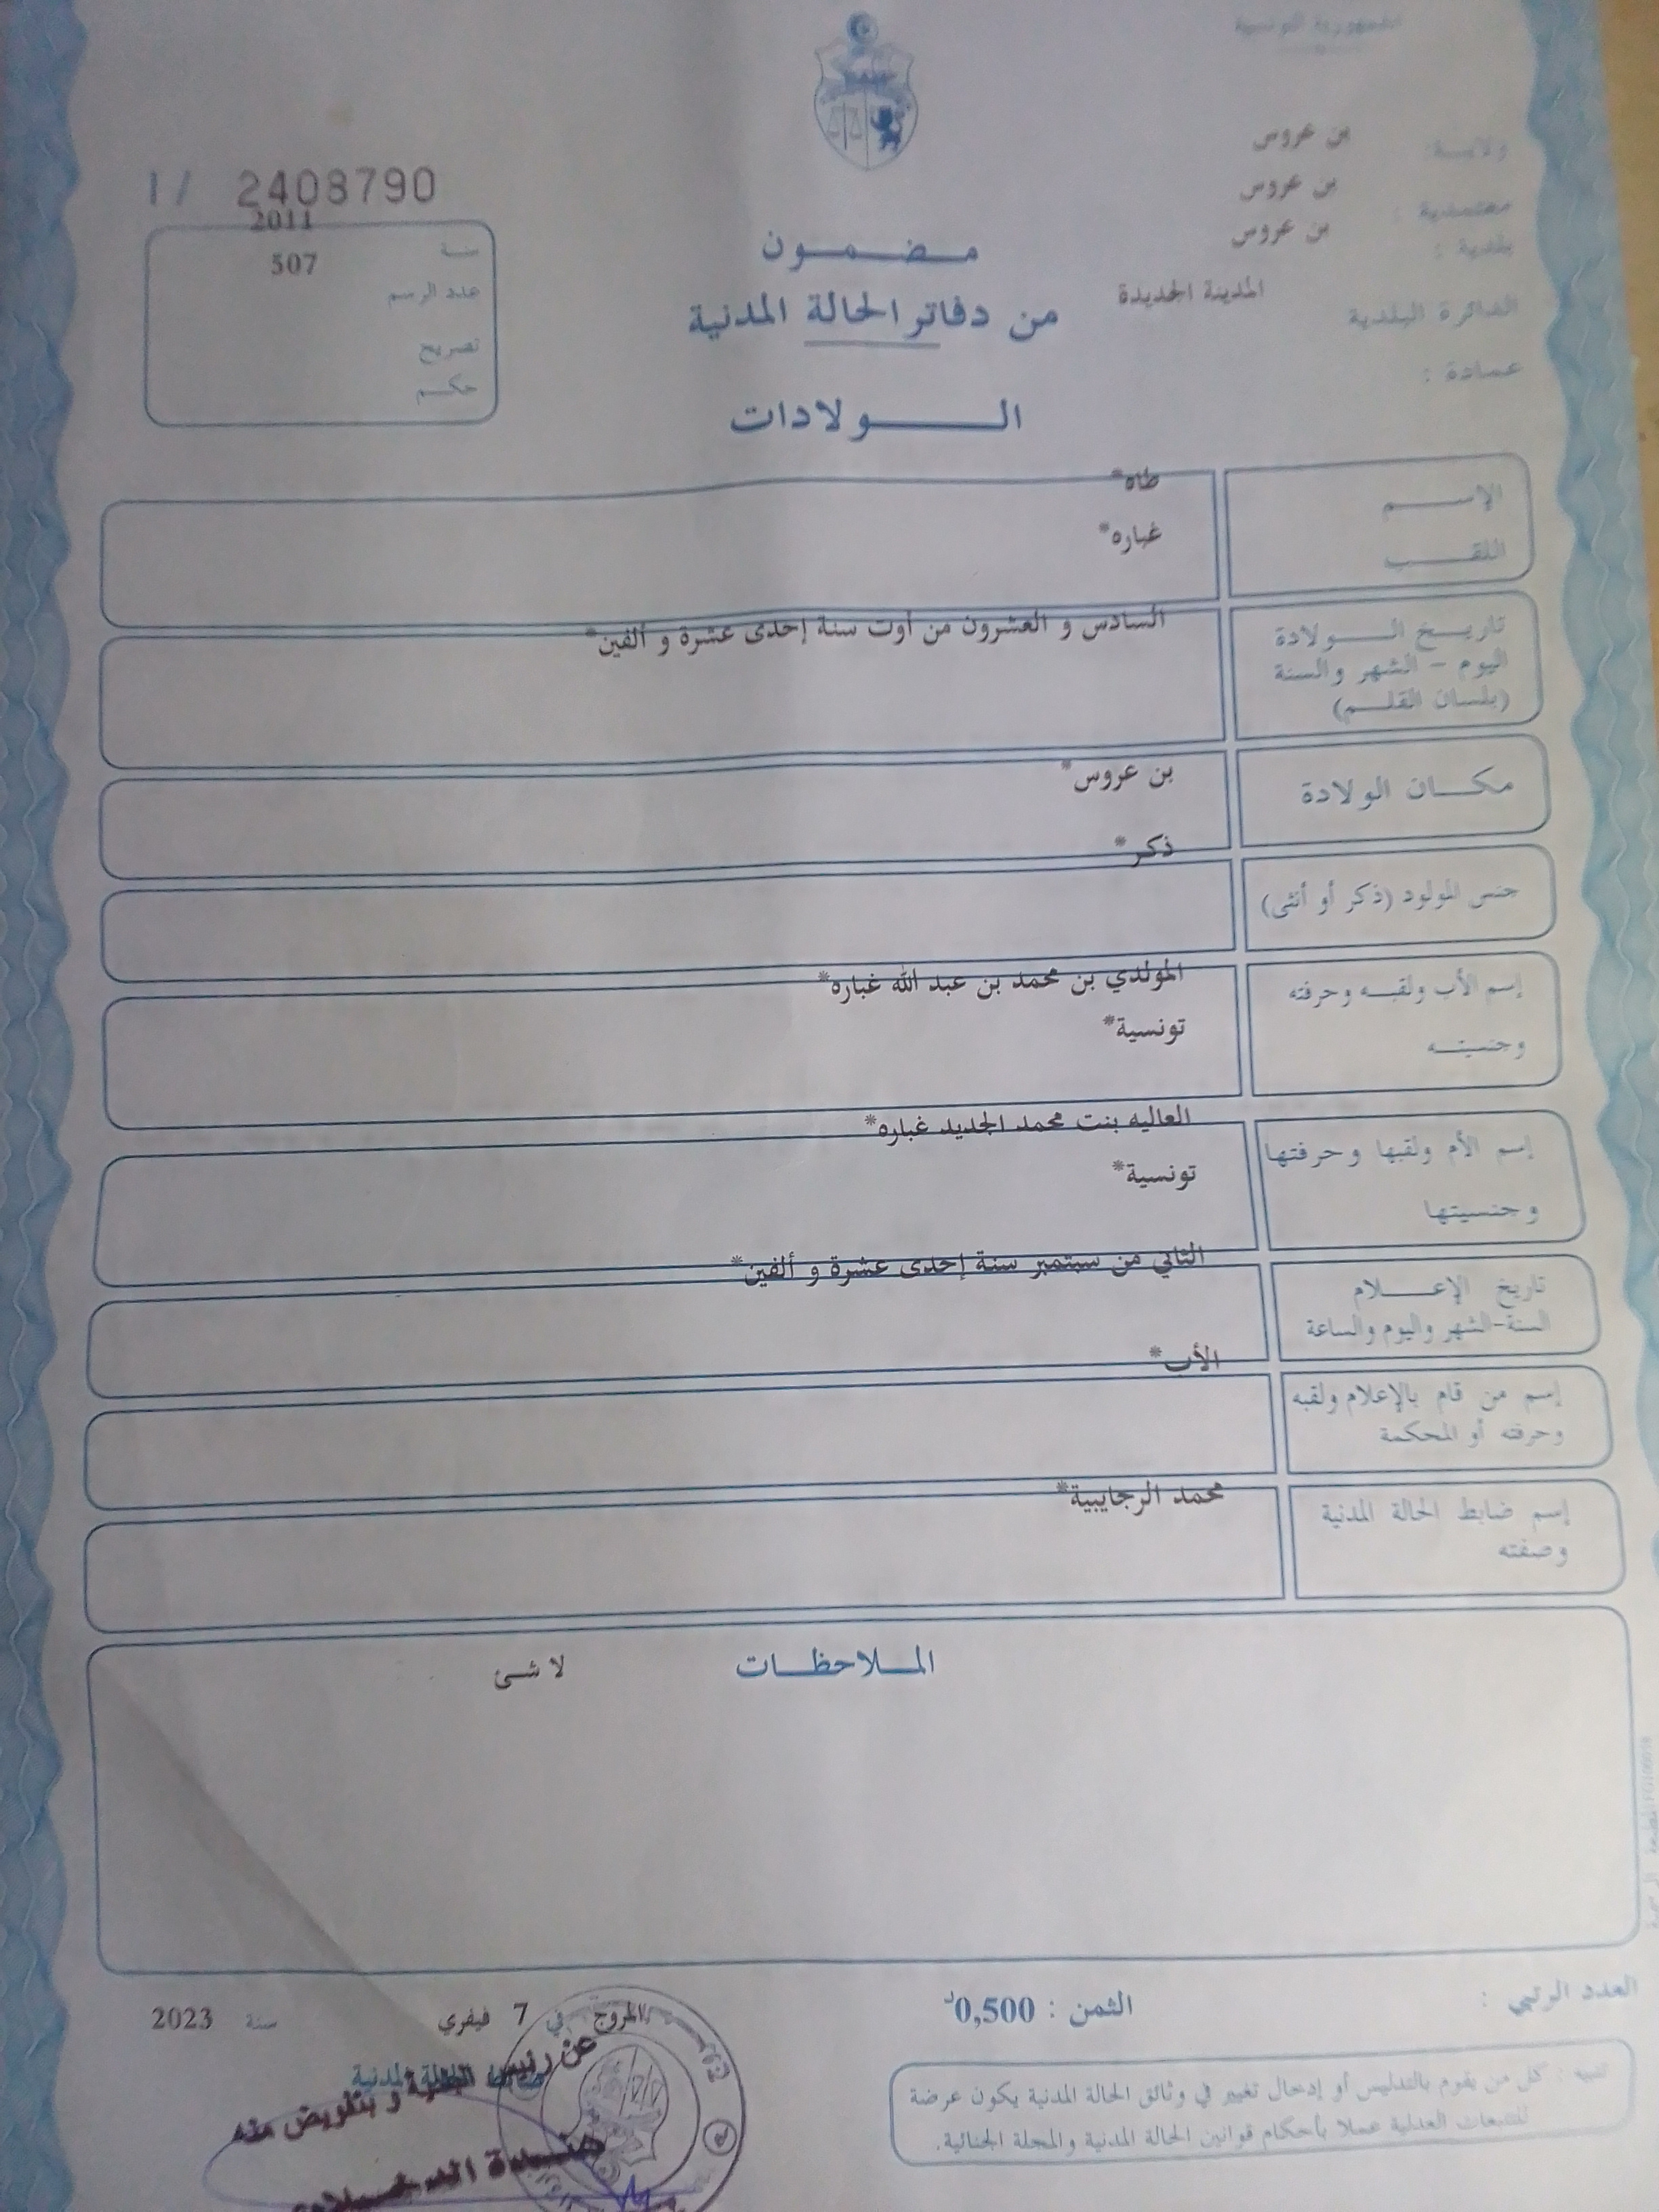 الجمهورية التونسية
ولاية: بن عروس
معتمدية : بن عروس
بلدية : بن عروس
الدائرة البلدية المدينة الجديدة
عمادة :
1/ 2408790
سنة 2011
عدد الرسم 507
تصريح
حكم
مضمون
من دفاتر الحالة المدنية
الولادات
الإسم طاه*
اللقب غباره*
تاريخ الولادة
اليوم - الشهر والسنة
(بلسان القلم)
السادس و العشرون من أوت سنة إحدى عشرة و ألفين*
مكان الولادة بن عروس*
جنس المولود (ذكر أو أنثى) ذكر*
إسم الأب ولقبه وحرفته
وجنسيته
المولدي بن محمد بن عبد الله غباره*
تونسية*
إسم الأم ولقبها وحرفتها
وجنسيتها
العاليه بنت محمد الجديد غباره*
تونسية*
تاريخ الإعلام
السنة-الشهر واليوم والساعة
الثاني من سبتمبر سنة إحدى عشرة و ألفين*
إسم من قام بالإعلام ولقبه
وحرفته أو المحكمة
الأب*
إسم ضابط الحالة المدنية
وصفته
محمد الرجايبية*
الملاحظات لا شئ
العدد الرتبي :
الثمن : 0,500د
المروج في 7 فيفري سنة 2023
الحالة المدنية
عن رئيس الدائرة و بتفويض منه
تنبيه : كل من يقوم بالتدليس أو إدخال تغيير في وثائق الحالة المدنية يكون عرضة
للتتبعات العدلية عملا بأحكام قوانين الحالة المدنية والمجلة الجنائية.